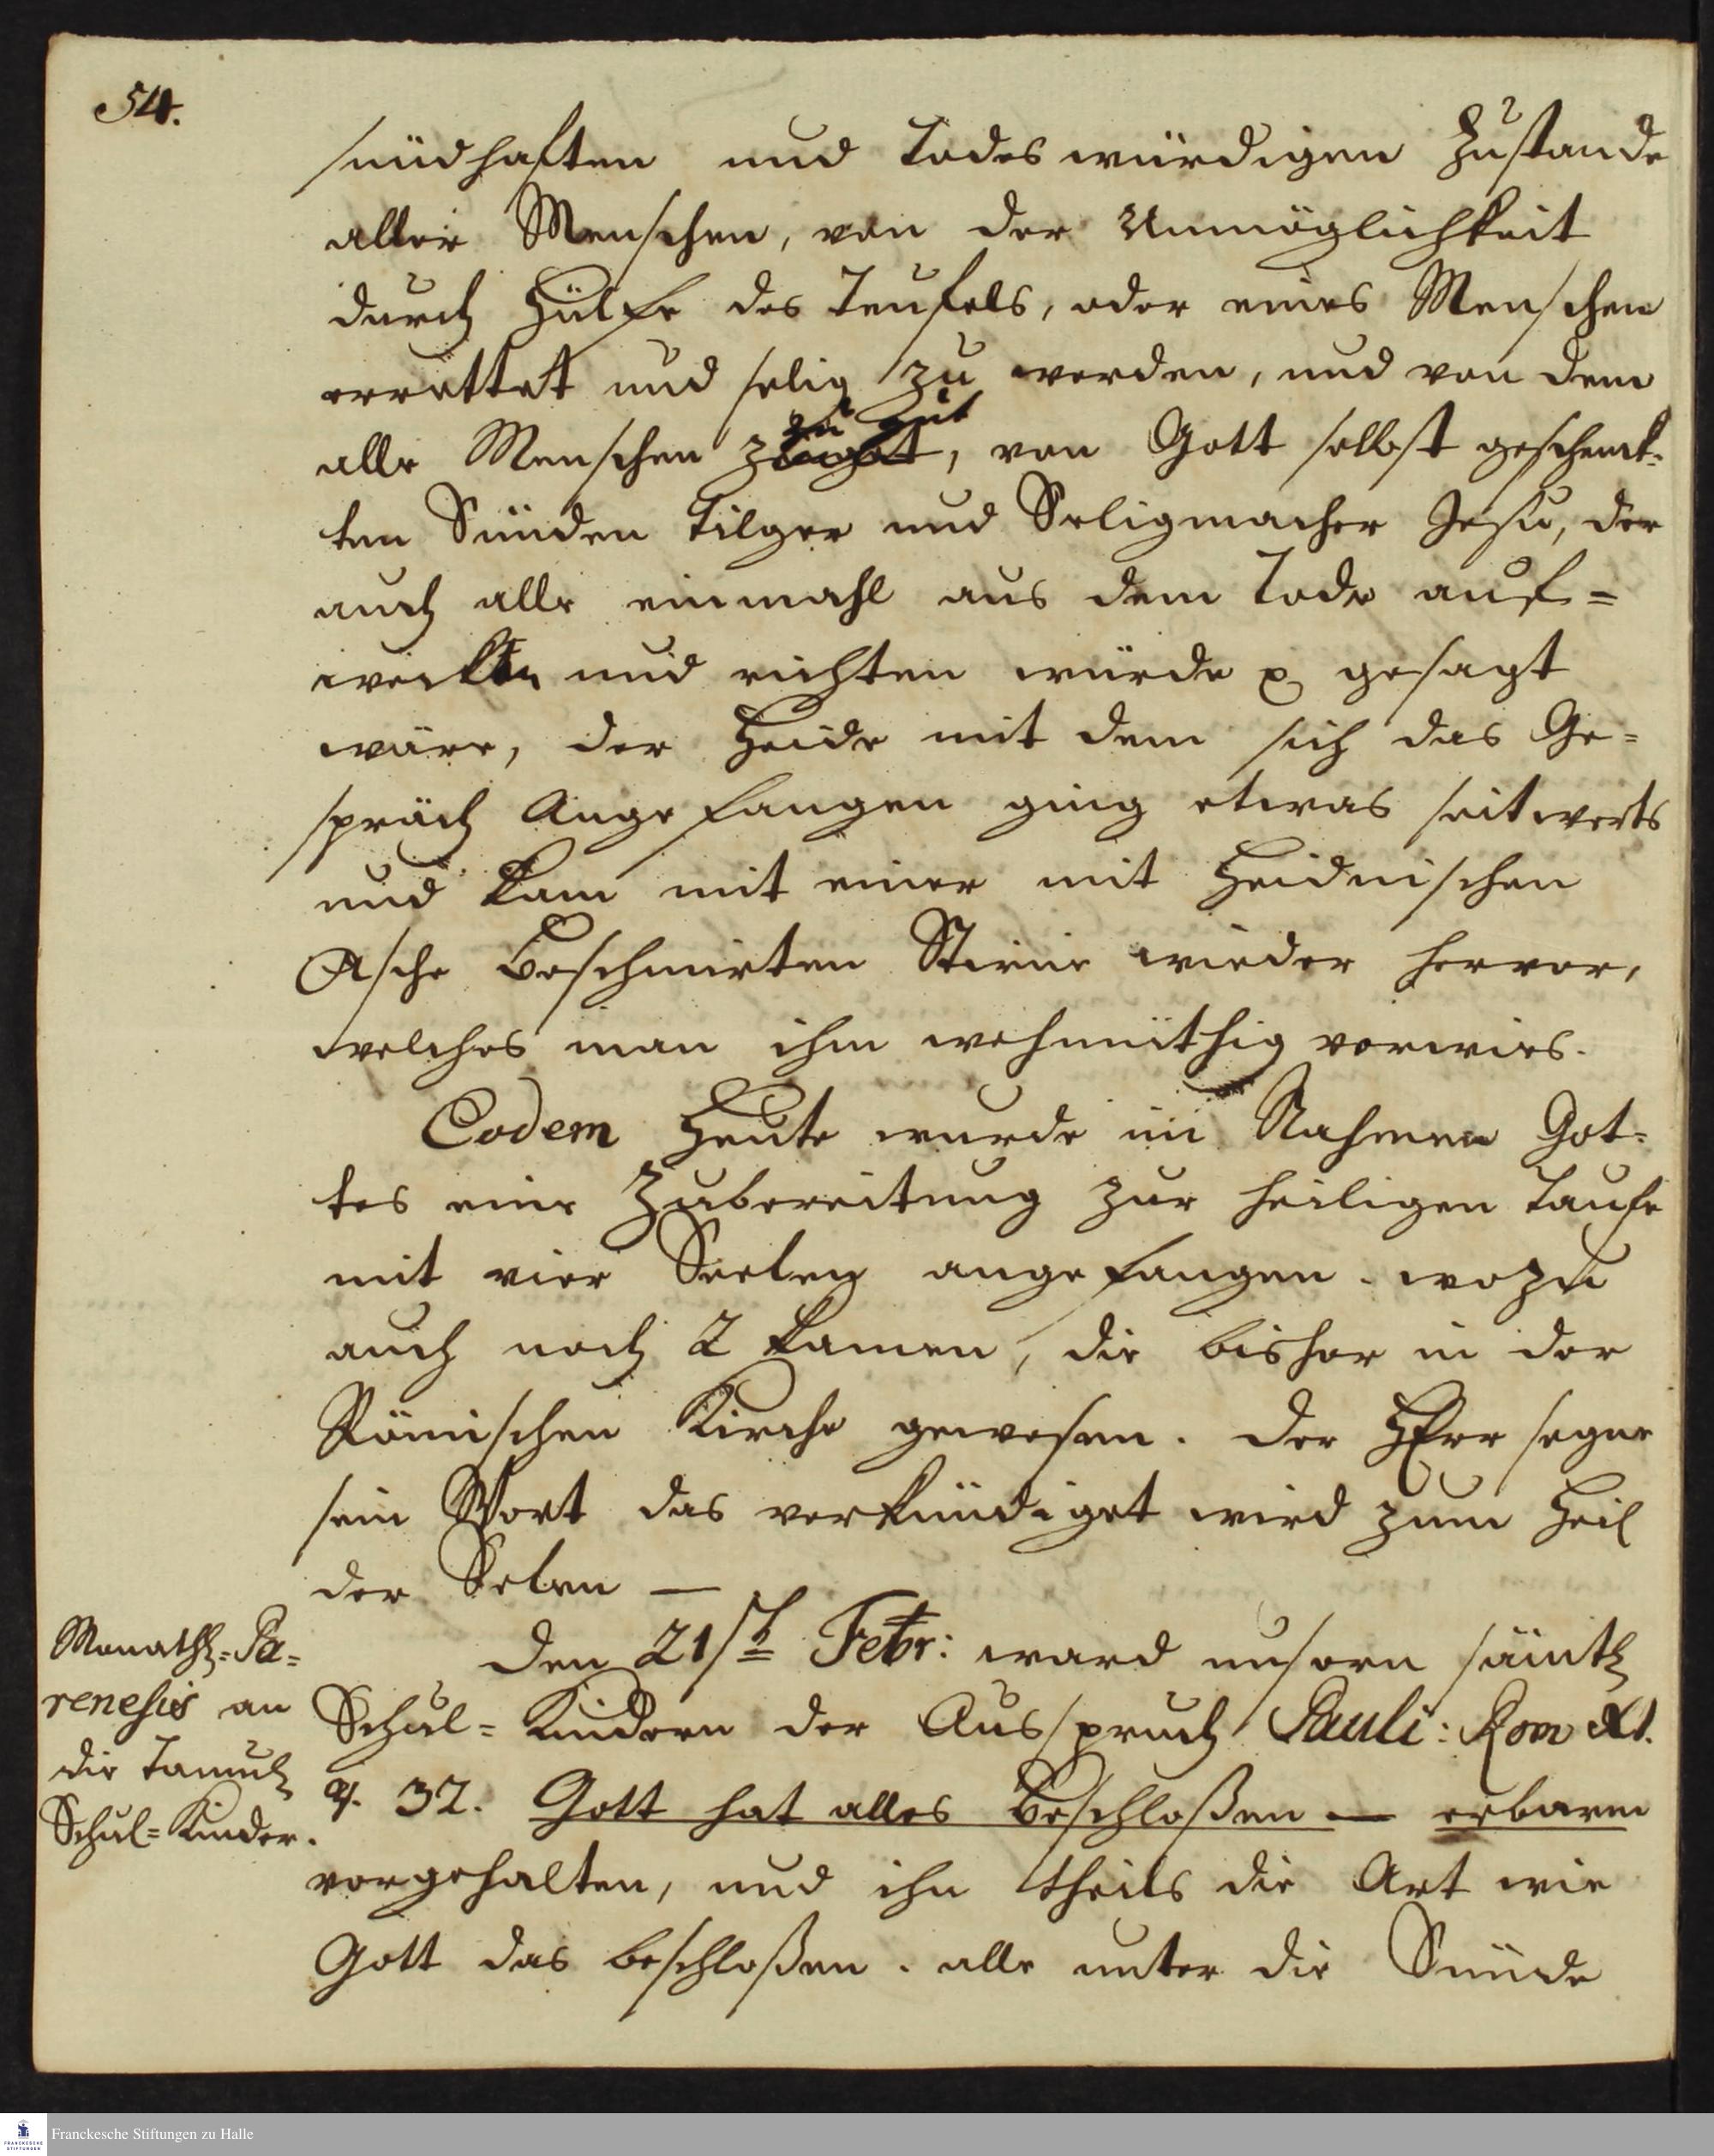 54.
sündhaften und Todes würdigen Zustande
aller Menschen, von der Unmöglichkeit
durch Hülfe des Teufels, oder eines Menschen
errettet und selig zu werden, und von dem
zu gut
alle Menschen, von Gott selbst geschenk-
ten Sünden Tilger und Seligmacher Jesu, der
auch alle einmahl aus dem Tode auf=
wecken und richten würde gesagt
wäre, der Heide mit dem sich das Ge=
spräch Angefangen ging etwas seitwerts
und kam mit einer mit Heidnischen
Asche Beschmirten Stirne wieder hervor,
welches man ihm wehmüthig verwies.
Eodem Heute wurde im Nahmen Got-
tes eine Zubereitung zur heiligen Taufe
mit vier Seelen angefangen. wozu
auch noch 2 kamen, die bisher in der
Römischen Kirche gewesen. Der HErr segne
sein Wort das verkündiget wird zum Heil
der Selen —
Monathl.-Pa=
renesis an
die Tamul.
Schul=Kinder.
Den 21st Febr: ward unsern sämtl.
Schul=Kindern der Ausspruch Pauli: Rom XI.
v. 32. Gott hat alles Beschloßen — erbarm
vorgehalten, und ihn theils die Art wie
Gott das beschloßen. alle unter die Sünde
Franckesche Stiftungen zu Halle